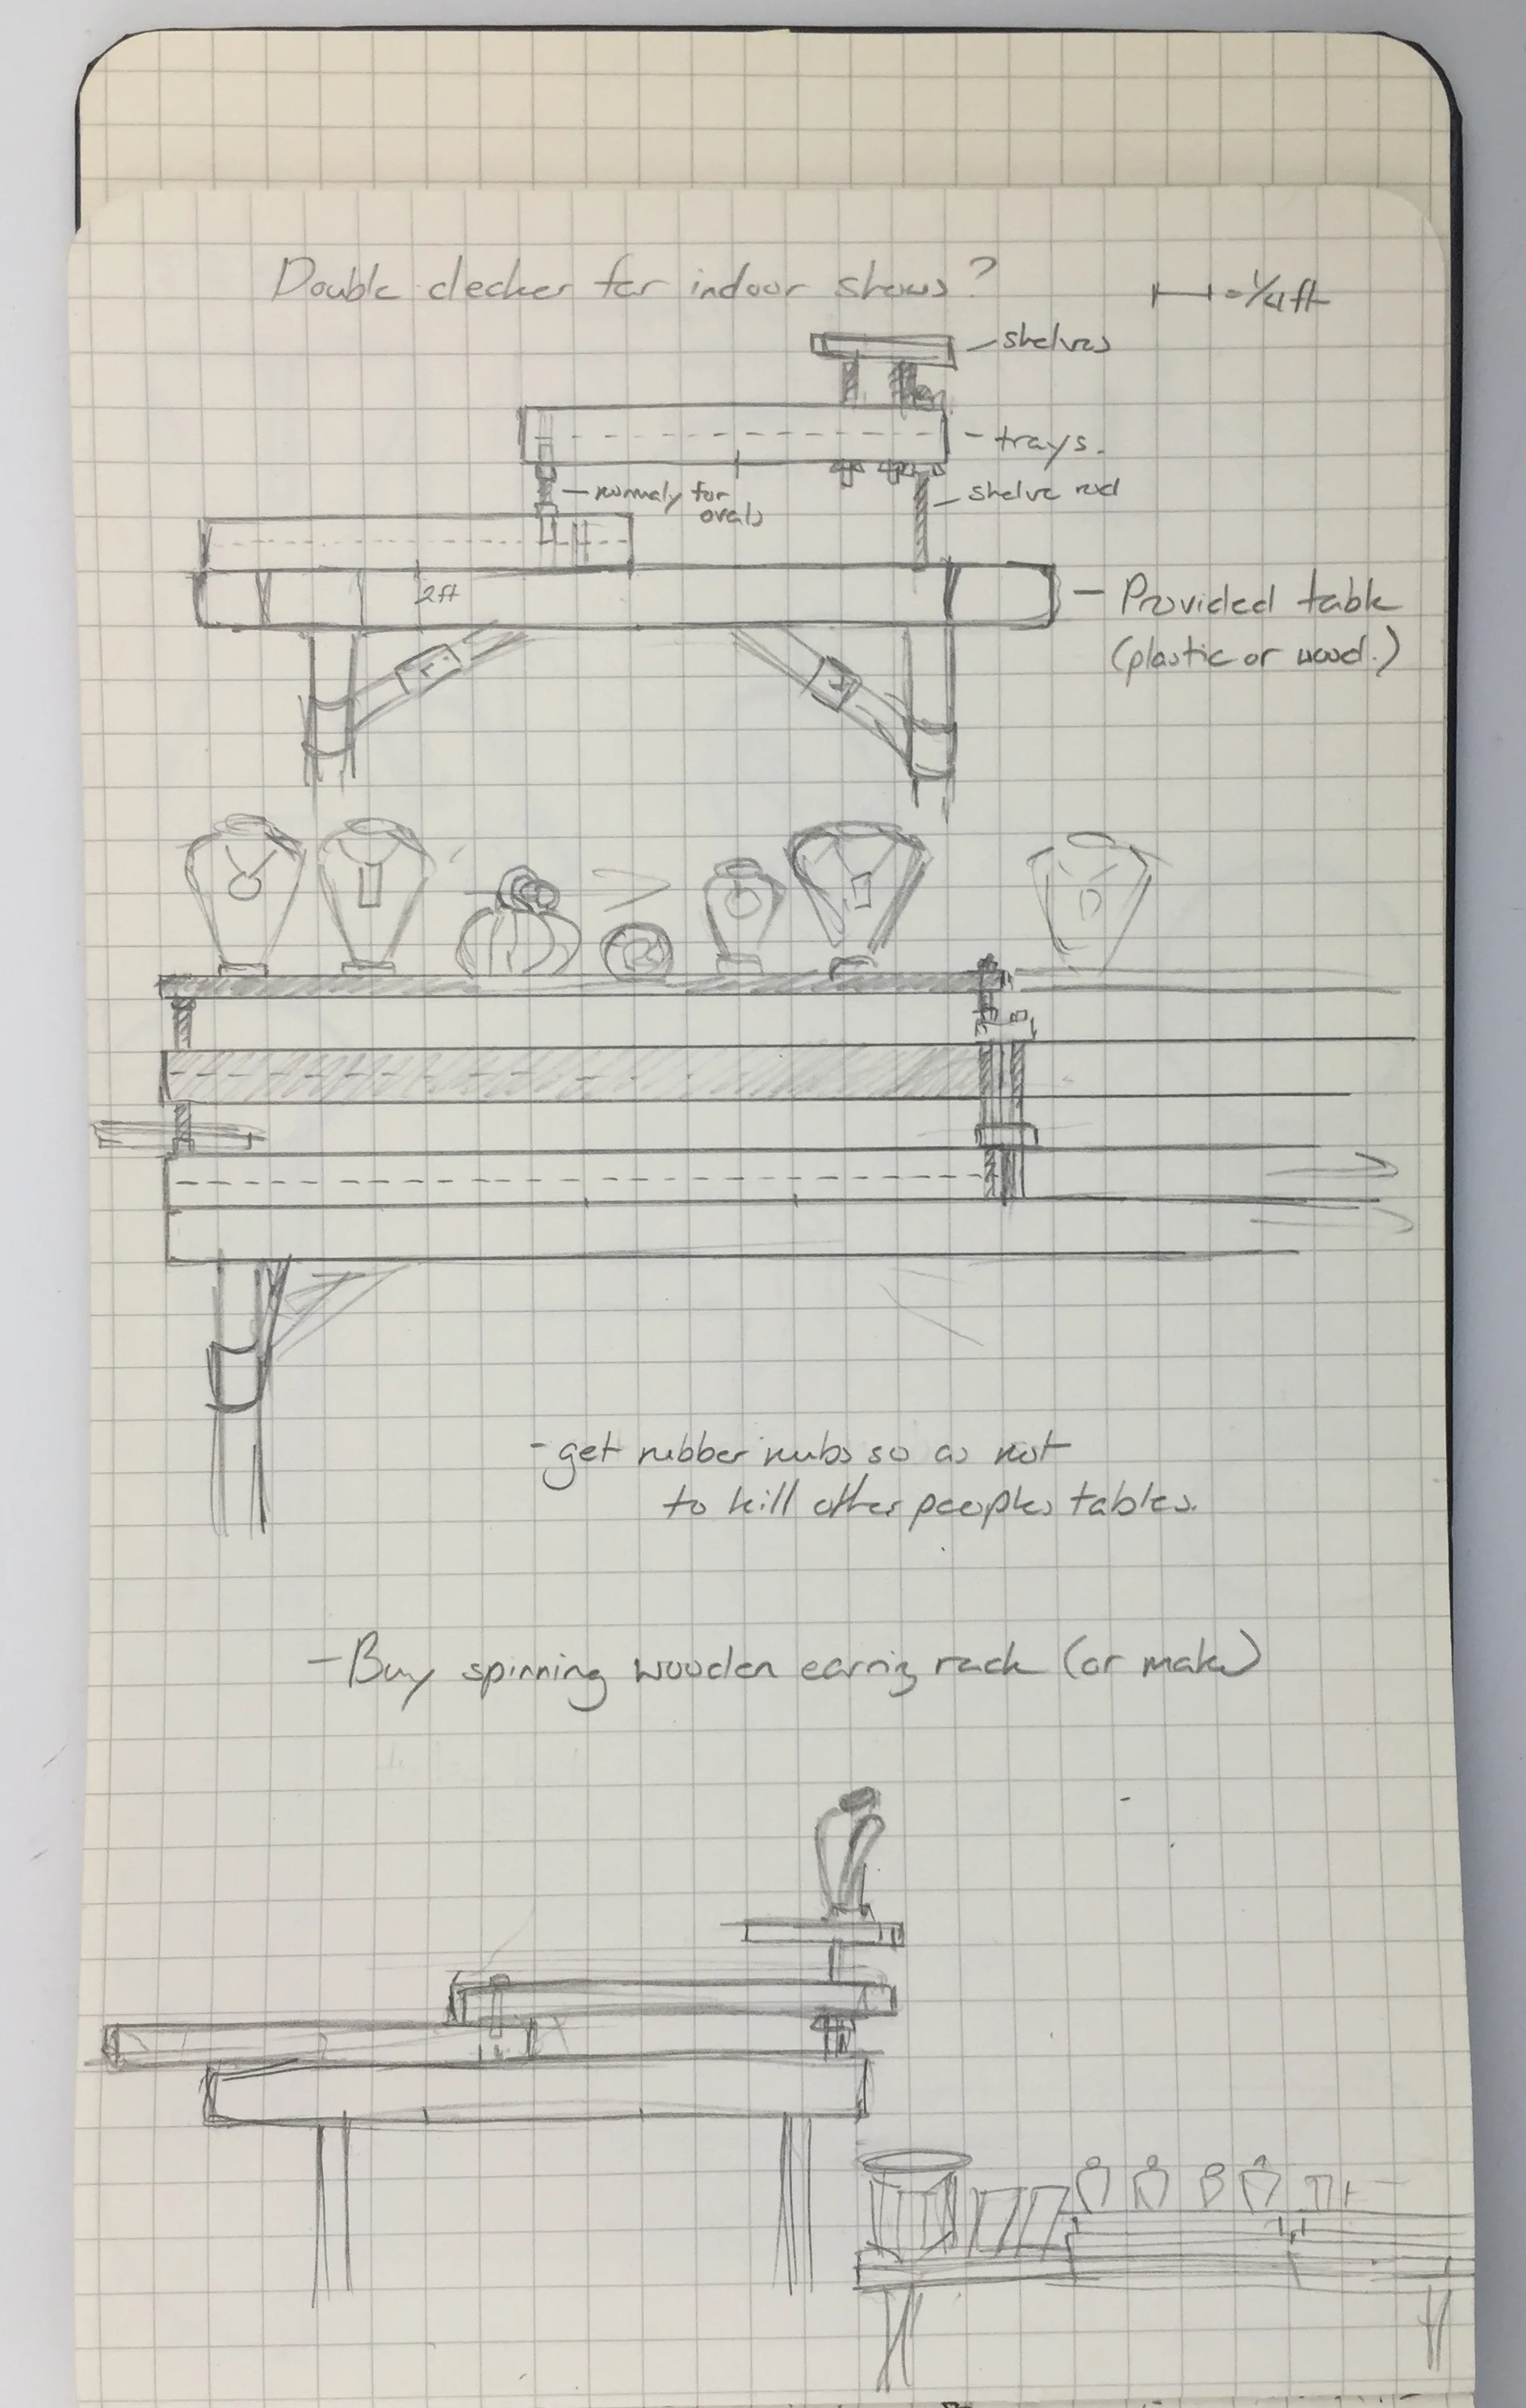 Double decker for indoor shows?
= 1/4 ft
shelves
trays.
normaly for
ovals
shelve rod
2ft
Provided table
(plastic or wood.)
- get rubber nubs so as not
to kill other peoples tables.
- Buy spinning wooden earring rack (or make)